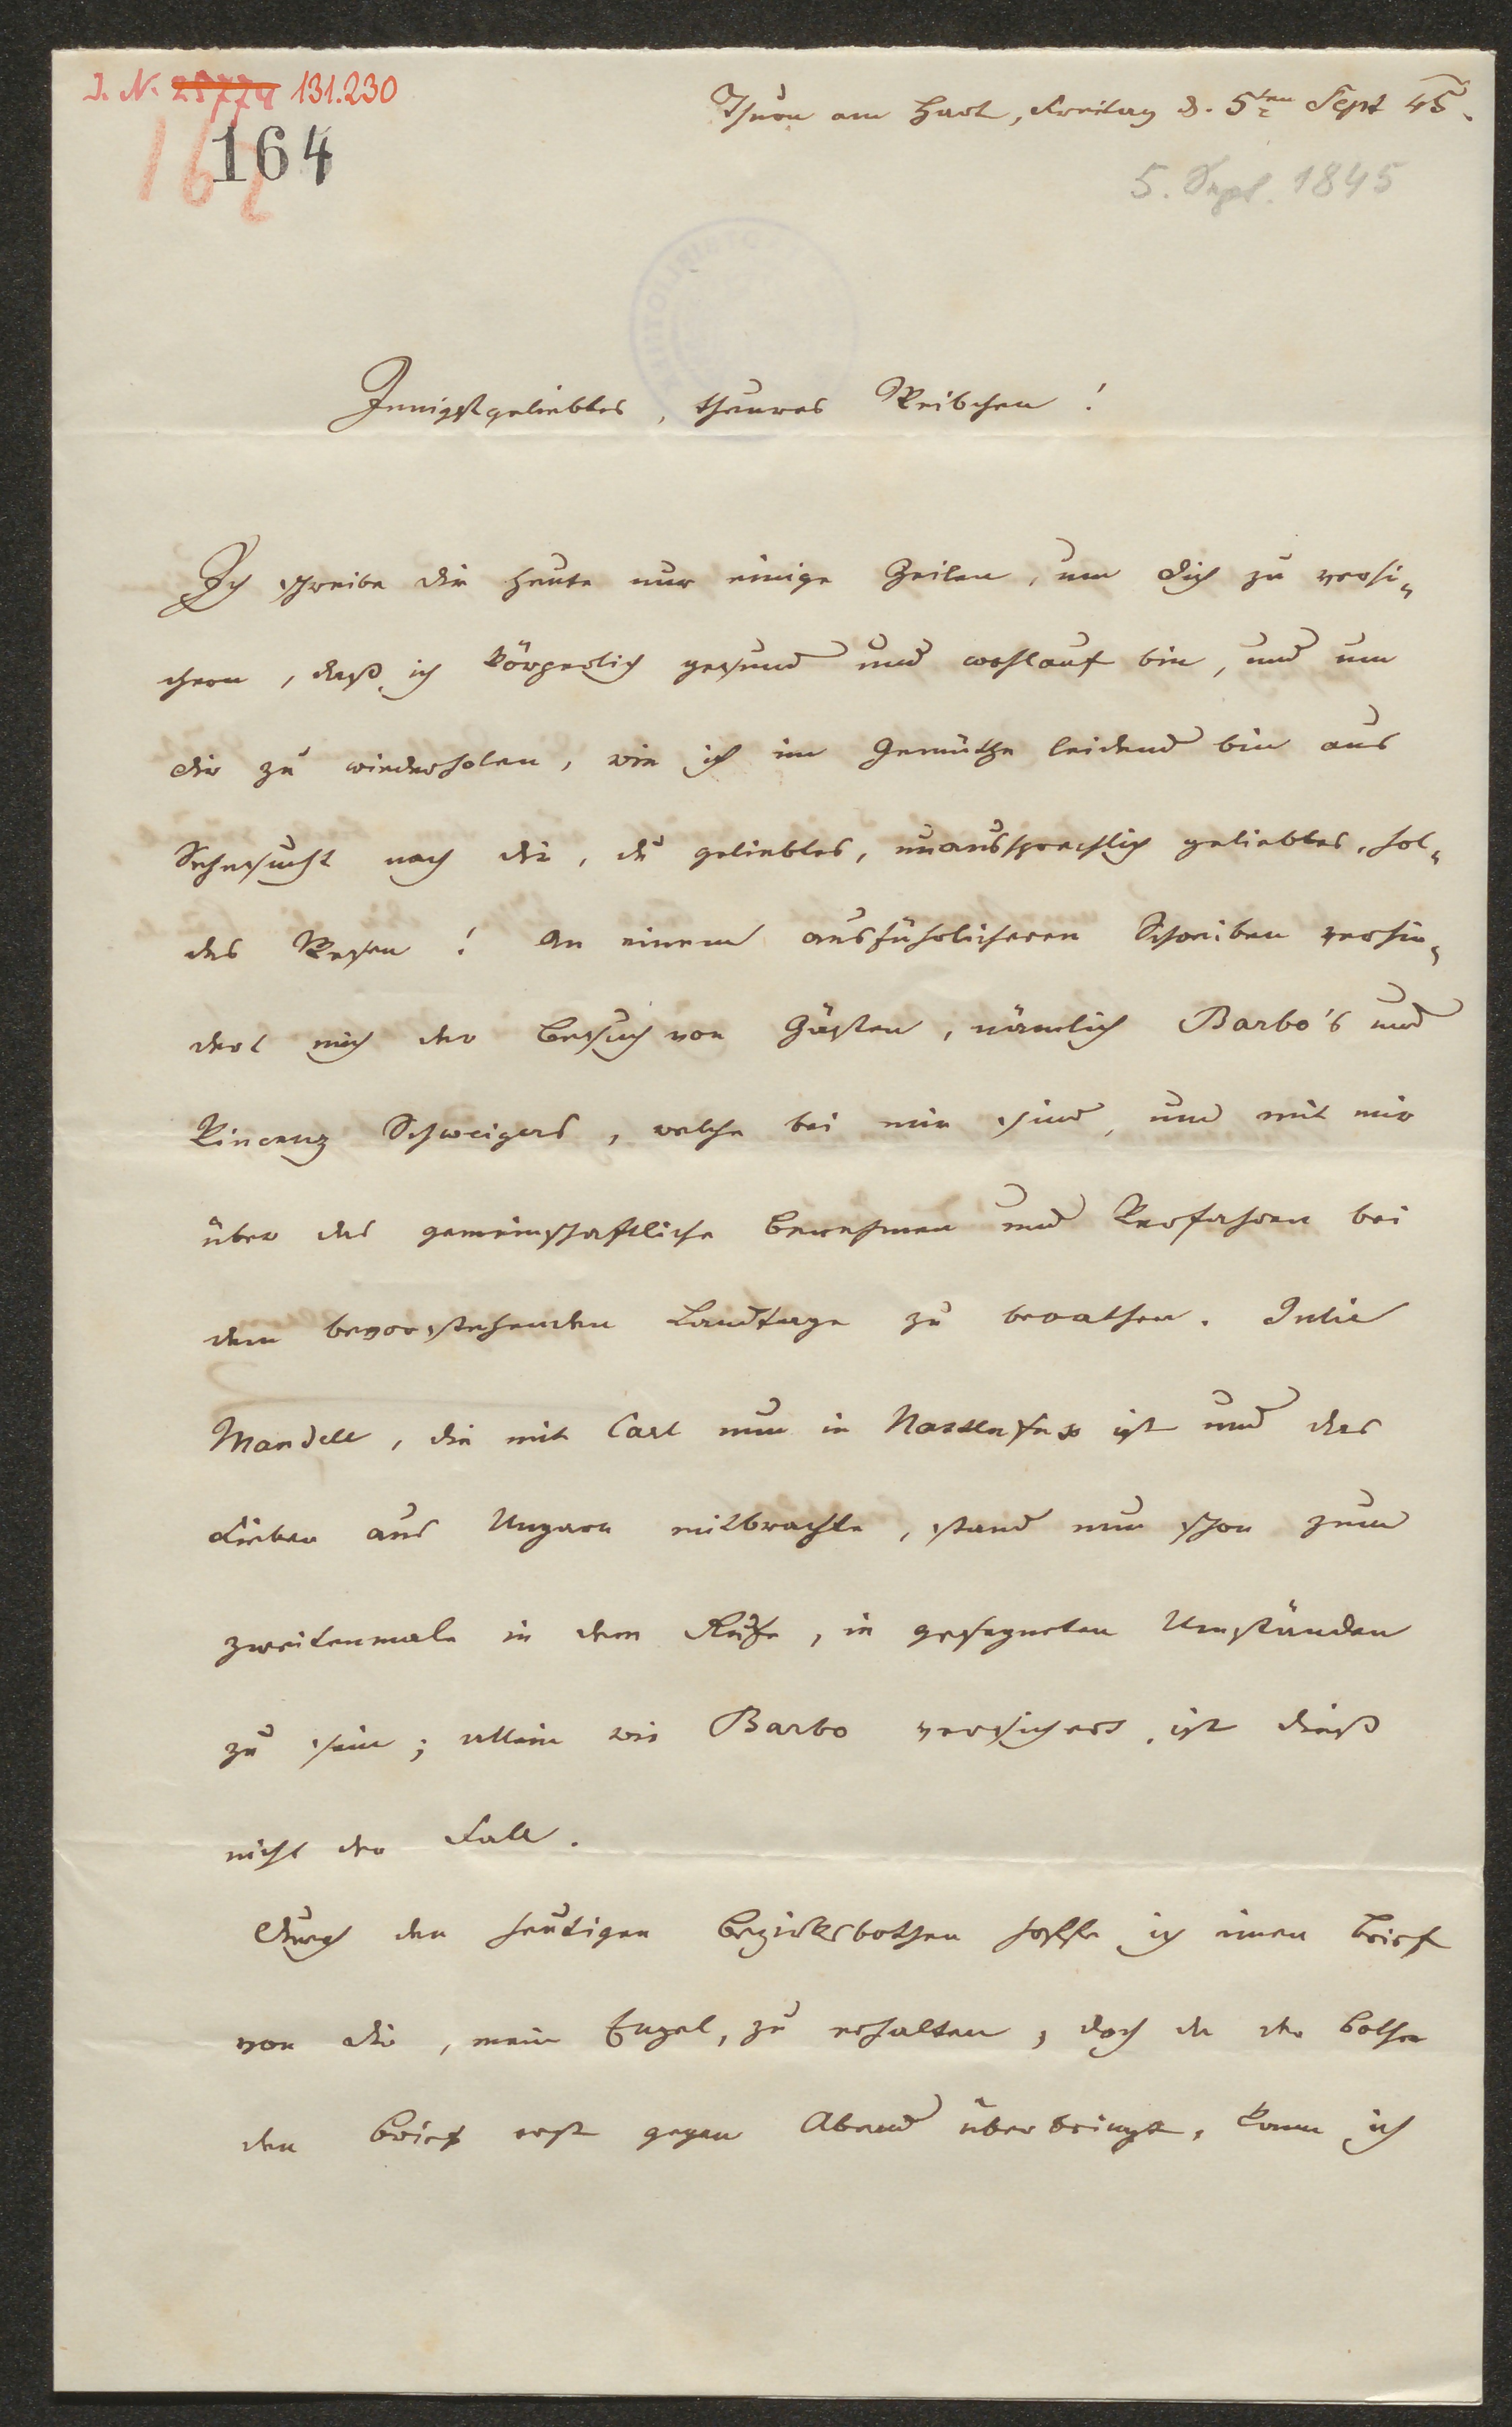 J. N. 25774 131.230
162
164
Thurn am Hart, Freitag d. 5ten Sept 45.
5. Sept. 1845
Innigstgeliebtes, theures Weibchen!
Ich schreibe dir heute nur einige Zeilen, um dich zu versi„
chern, daß ich körperlich gesund und wohlauf bin, und um
dir zu wiederholen, wie ich im Gemüthe leidend bin aus
Sehnsucht nach dir, du geliebtes, unaussprechlich geliebtes, hol„
des Wesen! An einem ausführlicheren Schreiben verhin„
dert mich der Besuch von Gästen, nämlich Barbo's und
Vincenz Schweigers, welche bei mir sind, um mit mir
über das gemeinschaftliche Benehmen und Verfahren bei
dem bevorstehenden Landtage zu berathen. Julie
Mandell, die mit Carl nun in Nassenfuß ist und das
Fieber aus Ungarn mitbrachte, stand nun schon zum
zweitenmale in dem Rufe, in gesegneten Umständen
zu sein; allein wie Barbo versichert, ist dieß
nicht der Fall.
Durch den heutigen Bezirksbothen hoffe ich einen Brief
von dir, mein Engel, zu erhalten, doch da der Bothe
den Brief erst gegen Abend überbringt, kann ich